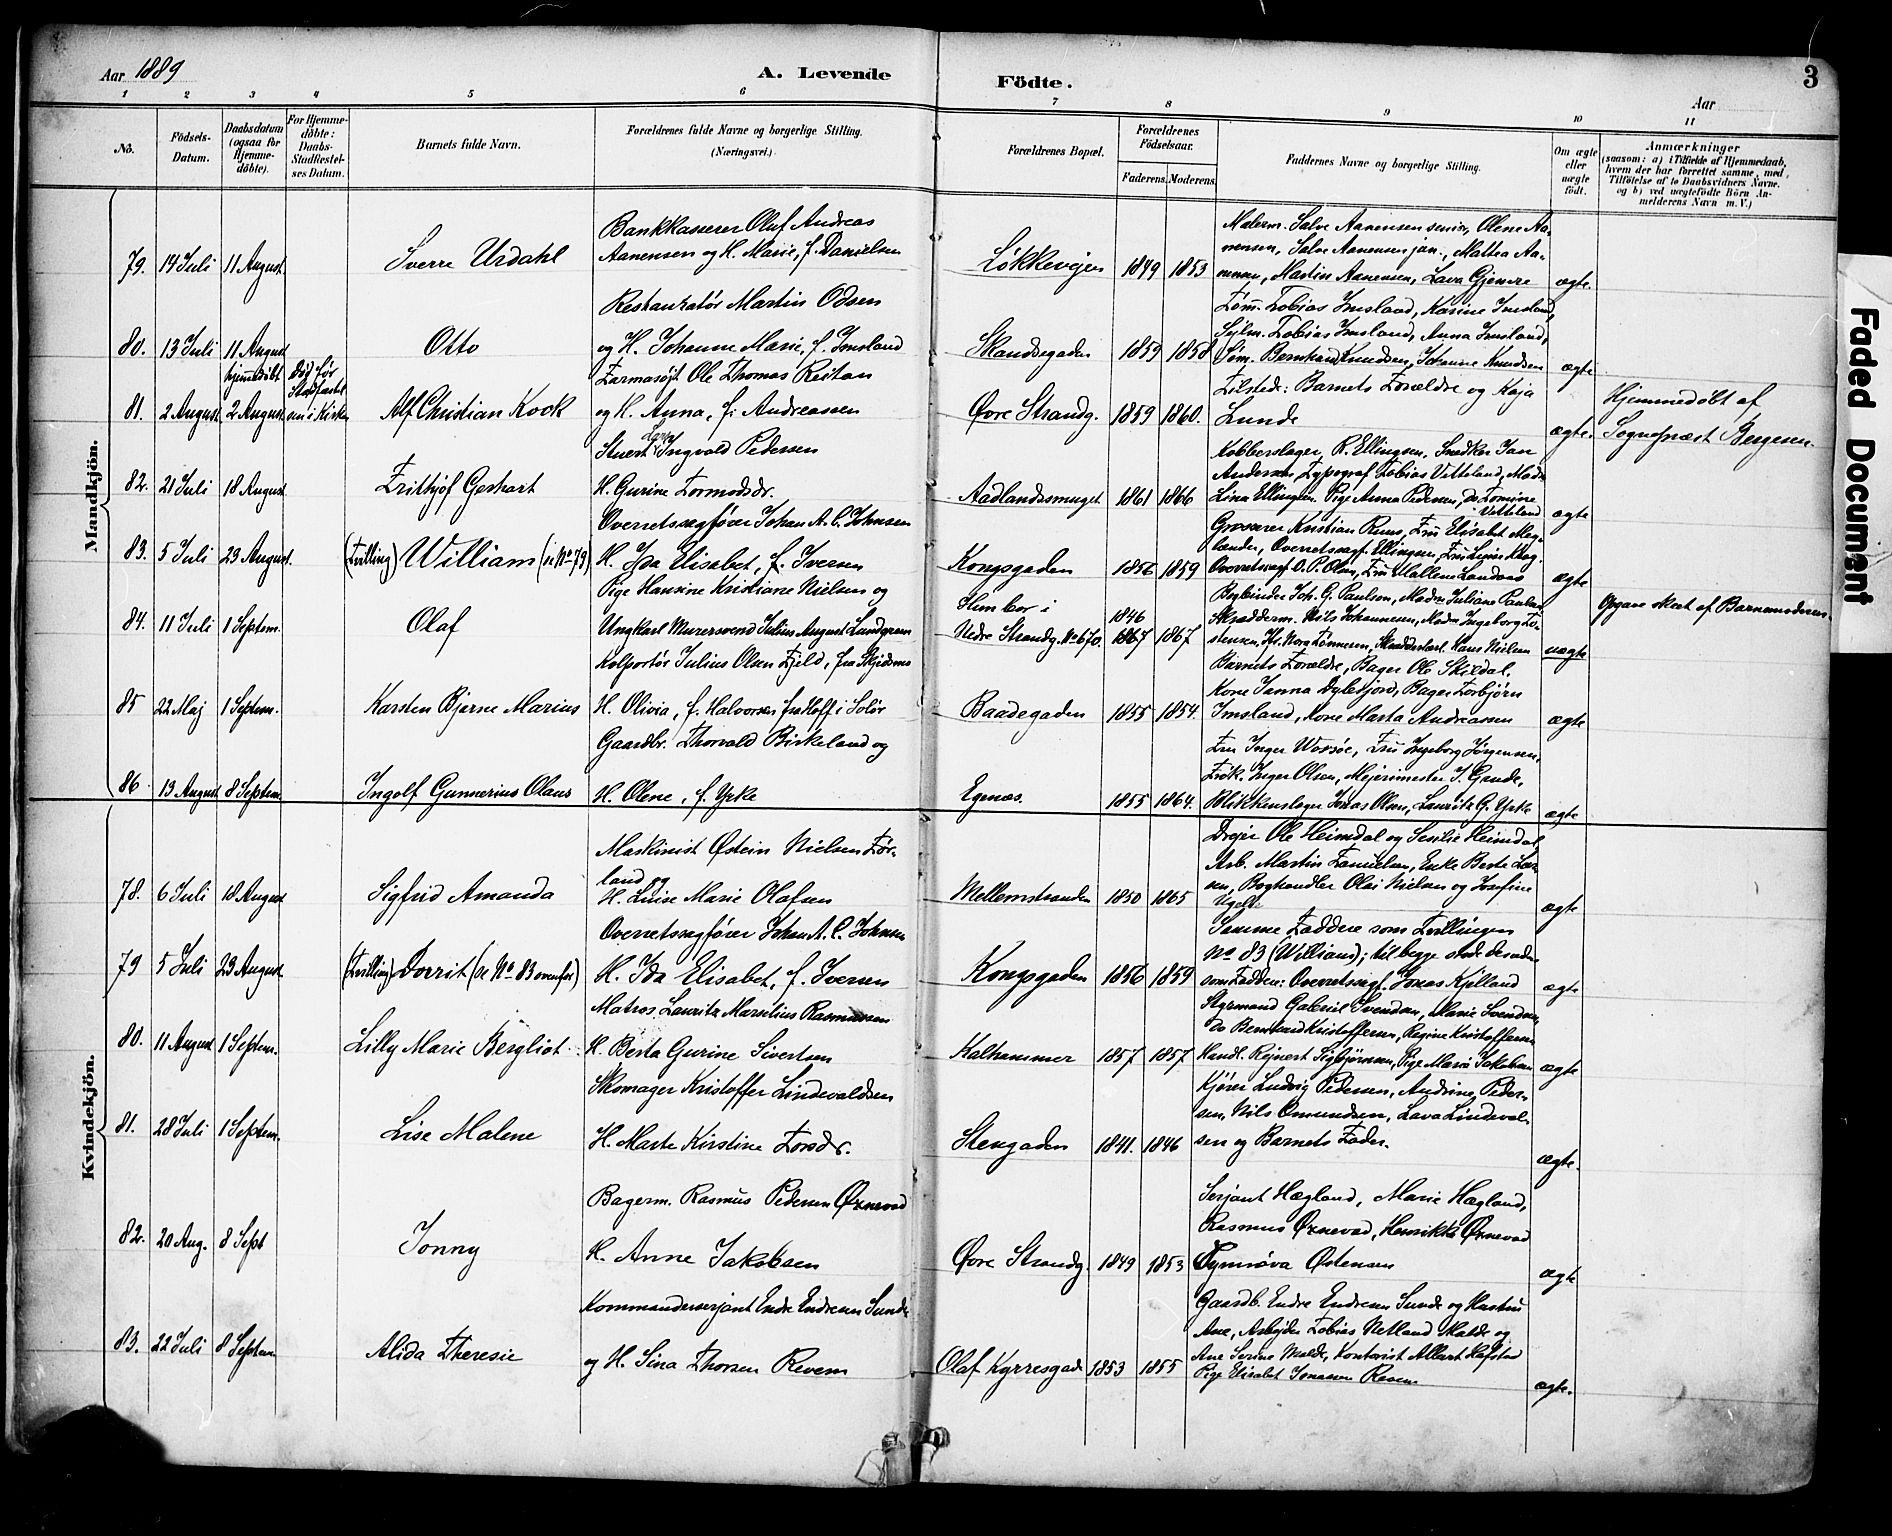 Aar 1889
A. Levende Födte.
3
Aar
1 2 3 4 5 6 7 8 9 10 11
No.
Födsels-Datum.
Daabsdatum (ogsaa for Hjemmedöbte).
For Hjemmedöbte: Daabs-Stadfæstelses Datum.
Barnets fulde Navn.
Forældrenes fulde Navne og borgerlige Stilling. (Næringsvei.)
Forældrenes Bopæl.
Forældrenes Födselsaar.
Faderens. Moderens.
Faddernes Navne og borgerlige Stilling.
Om ægte eller uægte födt.
Anmærkninger
(saasom: a) i Tilfælde af Hjemmedaab, hvem der har forrettet samme, med Tilföielse af to Daabsvidners Navne. og b) ved uægtefödte Börn Anmelderens Navn m. V.)
Mandkjön.
79. 14 Juli 11 August Sverre Urdahl
Bankkasserer Oluf Andreas
Aanensen og H. Marie, f. Danielsen
Løkkeveien 1849 1853
Malerm. Salve Aanensen senior, Olene Aa-
nensen, Salve Aanensen jun., Mathea Aa-
nensen, Martin Aanensen, Lava Gjemre
ægte.
80. 13 Juli 11 August Otto
Restauratør Martin Odsen
og H. Johanne Marie, f. Imsland
Skandsegaden 1859 1858
Tøm. Tobias Imsland, Karine Imsland,
Sejlm. Tobias Imsland, Anna Imsland,
Søm. Bernhard Knudsen, Johanne Knudsen
ægte
81. 2 August hjemmedøbt 2 August død før Stadfæstelsen i Kirken Alf Christian Kock
Farmasøjt Ole Thomas Reitan
og H. Anna, f. Andreassen
Øvre Strandg. 1859 1860.
Tilsted: Barnets Forældre og Kaja
Lunde
ægte.
Hjemmedøbt af
Sognepræst Bergesen
82. 21 Juli 18 August Frithjof Gerhart
Stuert Lars Ingvald Pedersen
H. Gurine Tormodsdr.
Aadlandssmuget 1861 1866
Kobberslager R. Ellingsen, Snedker Jan
Andersen, Typograf Tobias Vetteland, Mad.
Lina Ellingsen, Pige Anna Pedersen, do Tomine
Vetteland
ægte
83. 5 Juli 23 August. (Tvilling) William (se No 79)
Overretssagfører Johan A. C. Johnsen
H. Ida Elisabet, f. Iversen
Kongsgaden 1856 1859
Grosserer Kristian Rums, Fru Elisabet Meg-
lander, Overretssagf. Ellingsen,
Overretssagf. O. P. Olsen, Fru Mallene Landaas
ægte
84. 11 Juli 1 Septem. Olaf
Pige Hansine Kristiane Nielsen og
Ungkarl Murersvend Julius August Lundgreen
Hun bor i
Nedre Strandg. No 670. 1846 1867 1867
Bogbinder Joh. G. Paulsen, Madm Juliane Paulsen,
Skræderm. Nils Johannesen, Madm Ingeborg To-
stensen, Skrædderlærl. Hans Nielsen
uægte
Opgave skeet af Barnemoderen.
85 22 Maj 1 Septem. Karsten Bjarne Marius
Kolportør Julius Olsen Fjeld, fra Skjedsmo
H. Olivia, f. Halvorsen fra Hoff i Solør
Baadegaden 1855 1854.
Barnets Forældre, Bager Ole Skildal,
Kone Janna Dybesjord, Bager Torbjørn
Imsland, Kone Marta Andreassen
ægte
86 13 August 8 Septem. Ingolf Gunnerius Olaus
Gaardbr. Thorvald Birkeland og
H. Olene, f. Yrke
Egenæs. 1855 1864.
Fru Inger Worsøe, Fru Ingeborg Jørgensen,
Frøk. Inger Olsen, Mejerimester J. Gaude,
Blikkenslager Jonas Olsen, Lauritz G. Yrke
ægte
Kvindekjön.
78. 6 Juli 18 August Sigfrid Amanda
Maskinist Østein Nielsen Før-
land og
H. Luise Marie Olafsen
Mellemstranden 1850 1865
Drejer Ole Heimdal og Sesilie Heimdal,
Arb. Martin Samuelsen, Enke Berte Lar-
sen, Boghandler Olai Nielsen og Josefine
Ugelt
ægte
79 5 Juli 23 August (Tvilling) Dorrit (se No 83 ovenfor)
Overretssagfører Johan A. C. Johnsen
H. Ida Elisabet, f. Iversen
Kongsgaden 1856 1859
Samme Faddere som Tvillingen
No 83 (William); til begge stode desuden
som Fadder: Overretssagf. Jonas Kjelland
ægte
80. 11 August 1 Septem. Lilly Marie Bergliot
Matros Lauritz Marselius Rasmussen
H. Berta Gurine Sivertsen
Kalhammer 1857 1857
Styrmand Gabriel Svendsen, Marie Svendsen,
do Bernhard Kristoffersen, Regine Kristoffersen
Handl. Rejnert Sigbjørnsen, Pige Maria Jakobsen
ægte
81. 28 Juli 1 Septem. Lise Malene
Skomager Kristoffer Lindevaldsen
H. Marte Kirstine Torsdr.
Stengaden 1841. 1846
Kjører Ludvig Pedersen, Andrine Peder-
sen, Nils Omundsen, Lava Lindeval-
sen og Barnets Fader.
ægte.
82. 20 Aug. 8 Sept Jonny
Bagerm. Rasmus Pedersen Øxnevad
H. Anne Jakobsen
Øvre Strandg. 1849 1853
Serjant Hægland, Marie Hægland,
Rasmus Øxnevad, Henrikke Øxnevad
Synnøva Østensen
ægte
83. 22 Juli 8 Septem Alida Theresie
Kommandersergjant Endre Endresen Sunde
og H. Sina Thorsen Revem
Olaf Kyrresgade 1853 1855
Gaardb. Endre Endresen Sunde og Hustru
Ane, Arbejder Tobias Netland Malde og
Ane Serine Malde, Kontorist Allert Hafstad
Pige Elisabet Jonassen Revem
ægte.
Faded Document